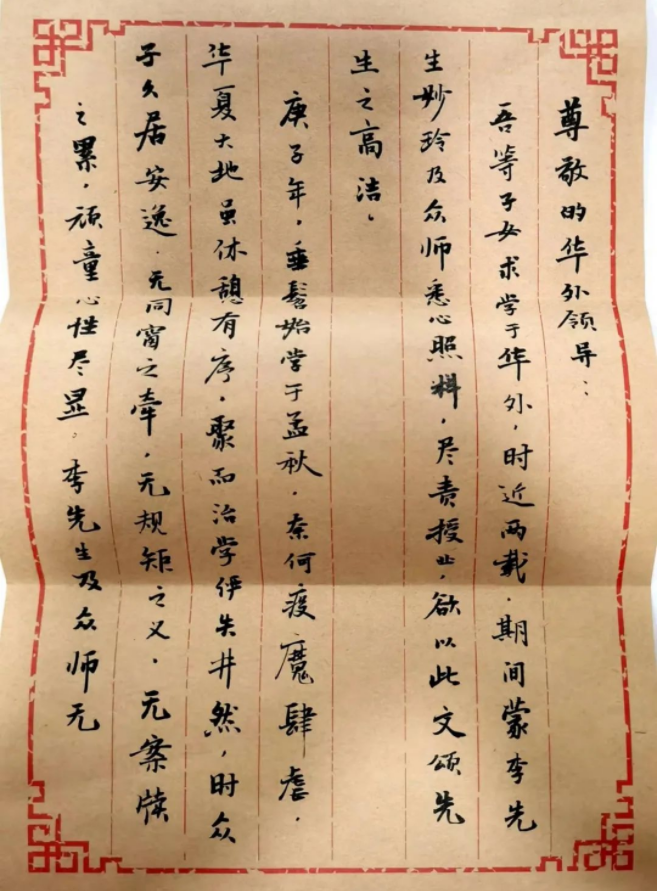 尊敬的华外领导：
吾等子女求学于华外，时近两载．期间蒙李先
生妙玲及众师悉心照料，尽责授业，欲以此文颂先
生之高洁。
庚子年，垂髫始学于孟秋．奈何疫魔肆虐．
华夏大地虽休憩有序．聚而治学俨失井然，时众
子久居安逸．无同窗之牵，无规矩之义．无案牍
之累．顽童心性尽显．李先生及众师无